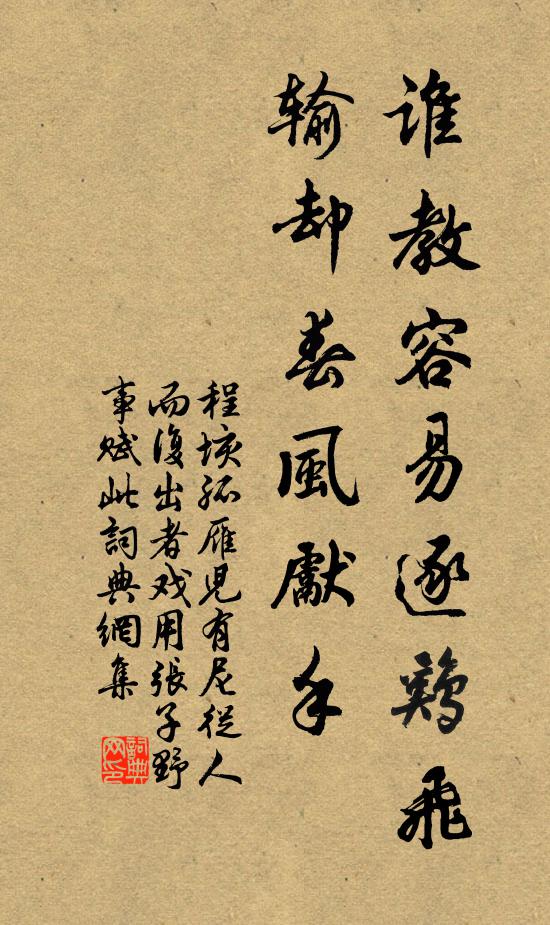 谁教容易逐鷄飛
输却春風獻手
程垓孤雁兒有尼從人
而復出者戏用張子野
事赋此詞典網集
詞典网印